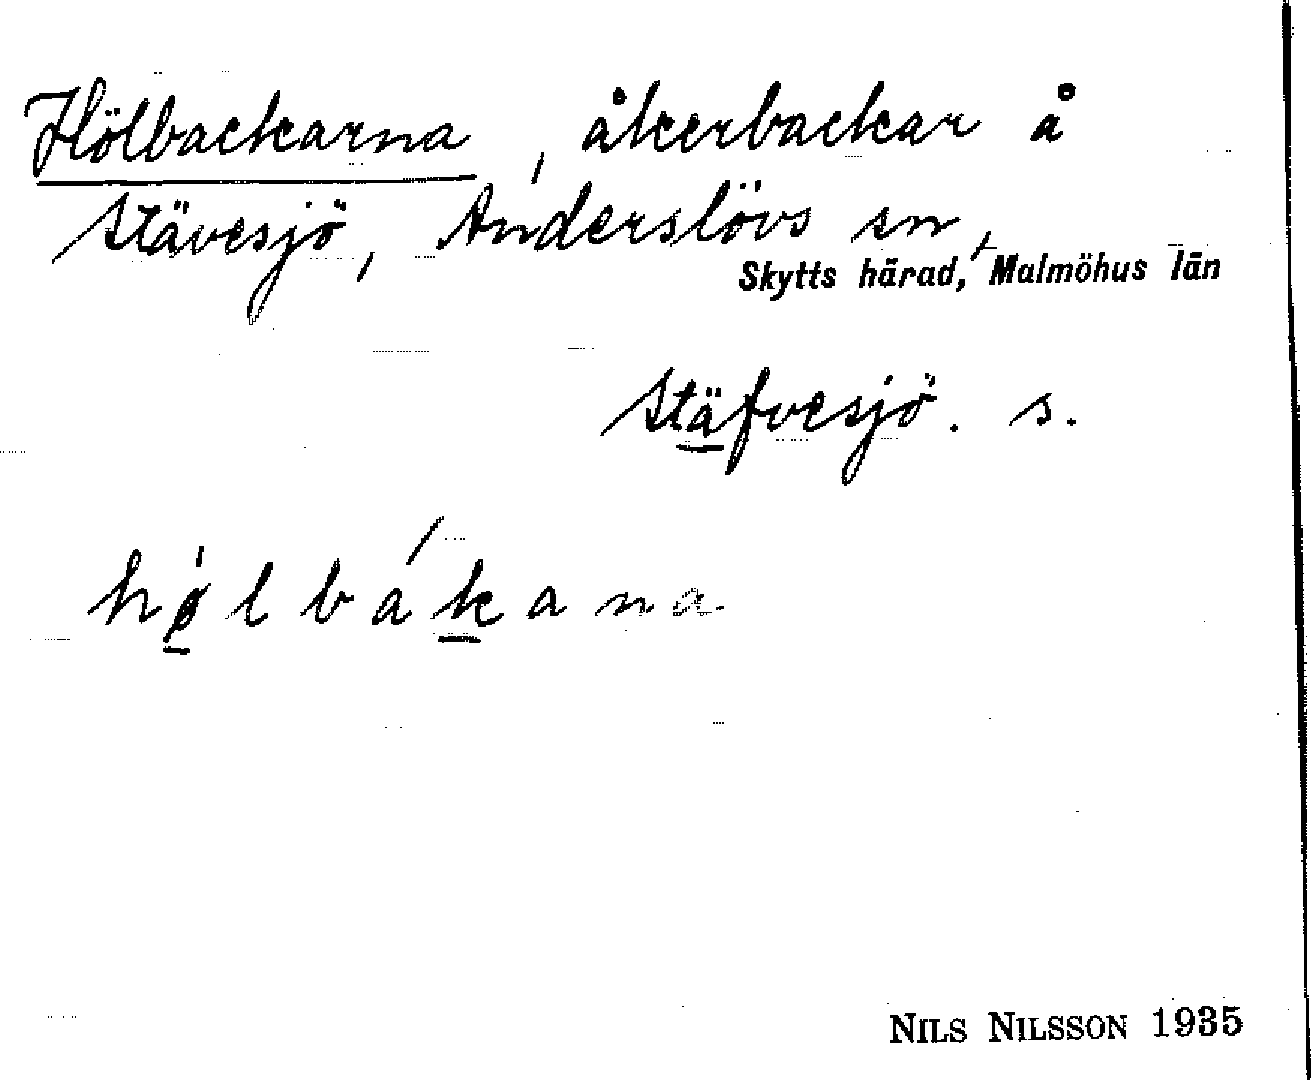 Hölbackarna, åkerbackar å
Stävesjö, Anderslövs sn,
Skytts härad, Malmöhus län
Stäfvesjö. s.
hø̱lbáḵana
NILS NILSSON 1935